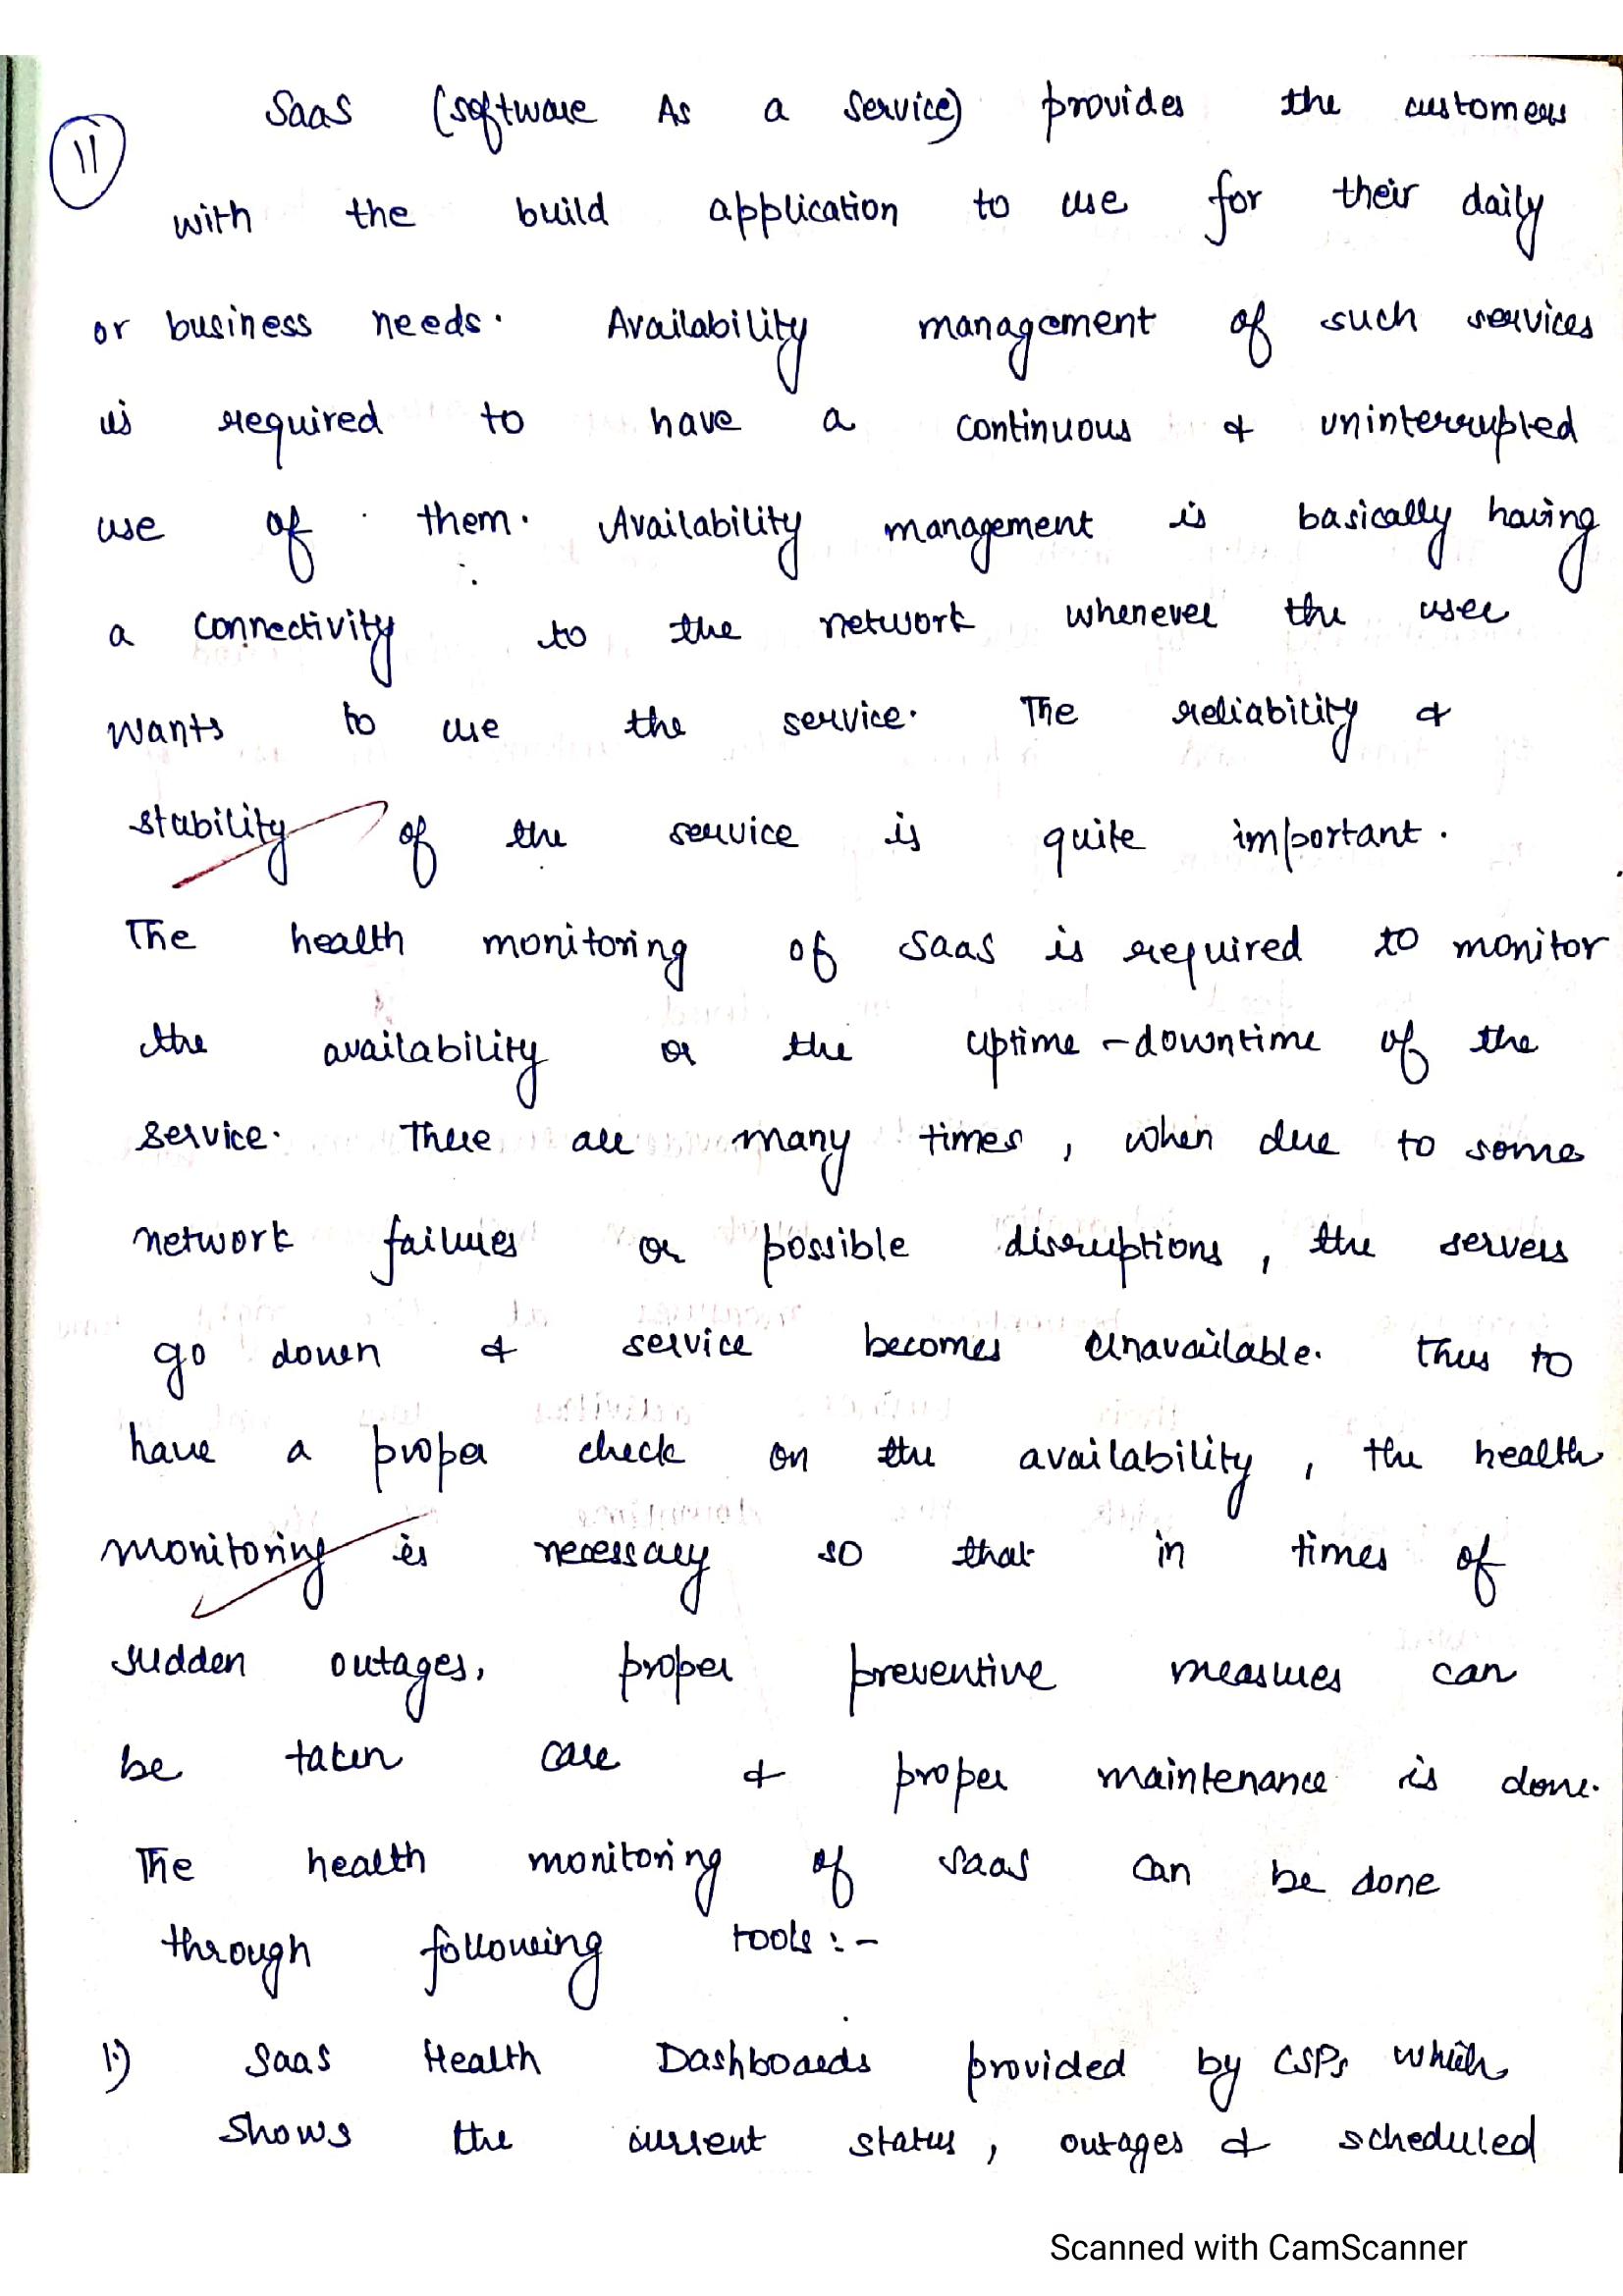 11
SaaS (software As a Service) provides the customers
with the build application to use for their daily
or business needs. Availability management of such services
is required to have a continuous & uninterrupted
use of them. Availability management is basically having
a connectivity to the network whenever the user
wants to use the service. The reliability &
stability of the service is quite important.
The health monitoring of SaaS is required to monitor
the availability or the uptime-downtime of the
service. There are many times, when due to some
network failures or possible disruptions, the servers
go down & service becomes unavailable. Thus to
have a proper check on the availability, the health
monitoring is necessary so that in times of
sudden outages, proper preventive measures can
be taken care & proper maintenance is done.
The health monitoring of SaaS can be done
through following tools:-
1.) SaaS Health Dashboards provided by CSPs which
shows the current status, outages & scheduled
Scanned with CamScanner